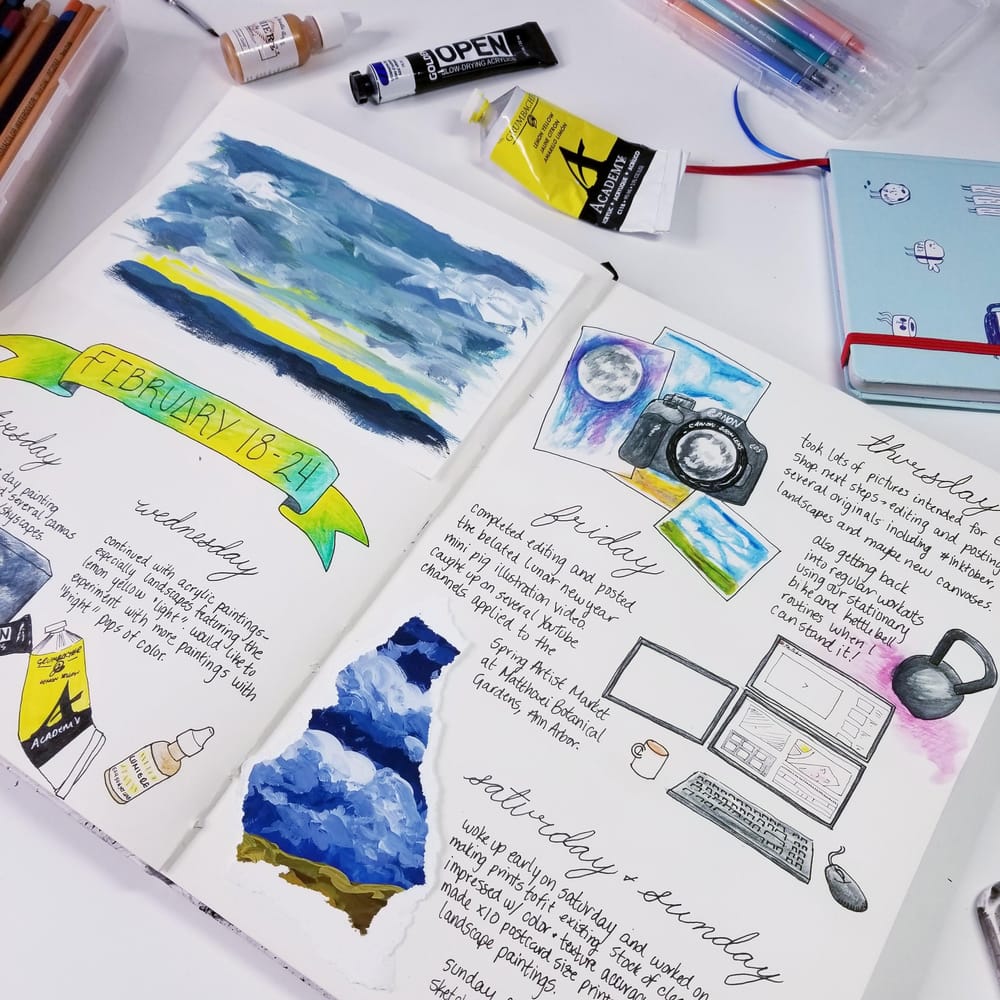 LUMIERE
GOLDEN
OPEN
SLOW-DRYING ACRYLIC
GRUMBACHER
LEMON YELLOW
JAUNE CITRON
AMARILLO LIMÓN
A
ACADEMY
ACRYLIC • ACRYLIQUE • ACRÍLICO
FEBRUARY 18-24
day painting
several canvas
skyscapes.
wednesday
continued with acrylic paintings-
especially landscapes featuring the
lemon yellow "light". would like to
experiment with more paintings with
"bright" pops of color.
OPEN
GRUMBACHER
LEMON YELLOW
A
ACADEMY
LUMIERE
CANON
CANON ZOOM LENS
thursday
took lots of pictures intended for
shop. next steps - editing and posting
several originals including #inktober,
landscapes and maybe new canvases.
also getting back
into regular workouts
using our stationary
bike and kettle bell
routines when I
can stand it!
friday
completed editing and posted
the belated lunar new year
mini pig illustration video.
caught up on several YouTube
channels. applied to the
Spring Artist Market
at Matthaei Botanical
Gardens, Ann Arbor.
saturday + sunday
woke up early on saturday and worked on
making prints to fit existing stock of
impressed w/ color + texture
made x10 postcard size
landscape paintings.
Sunday